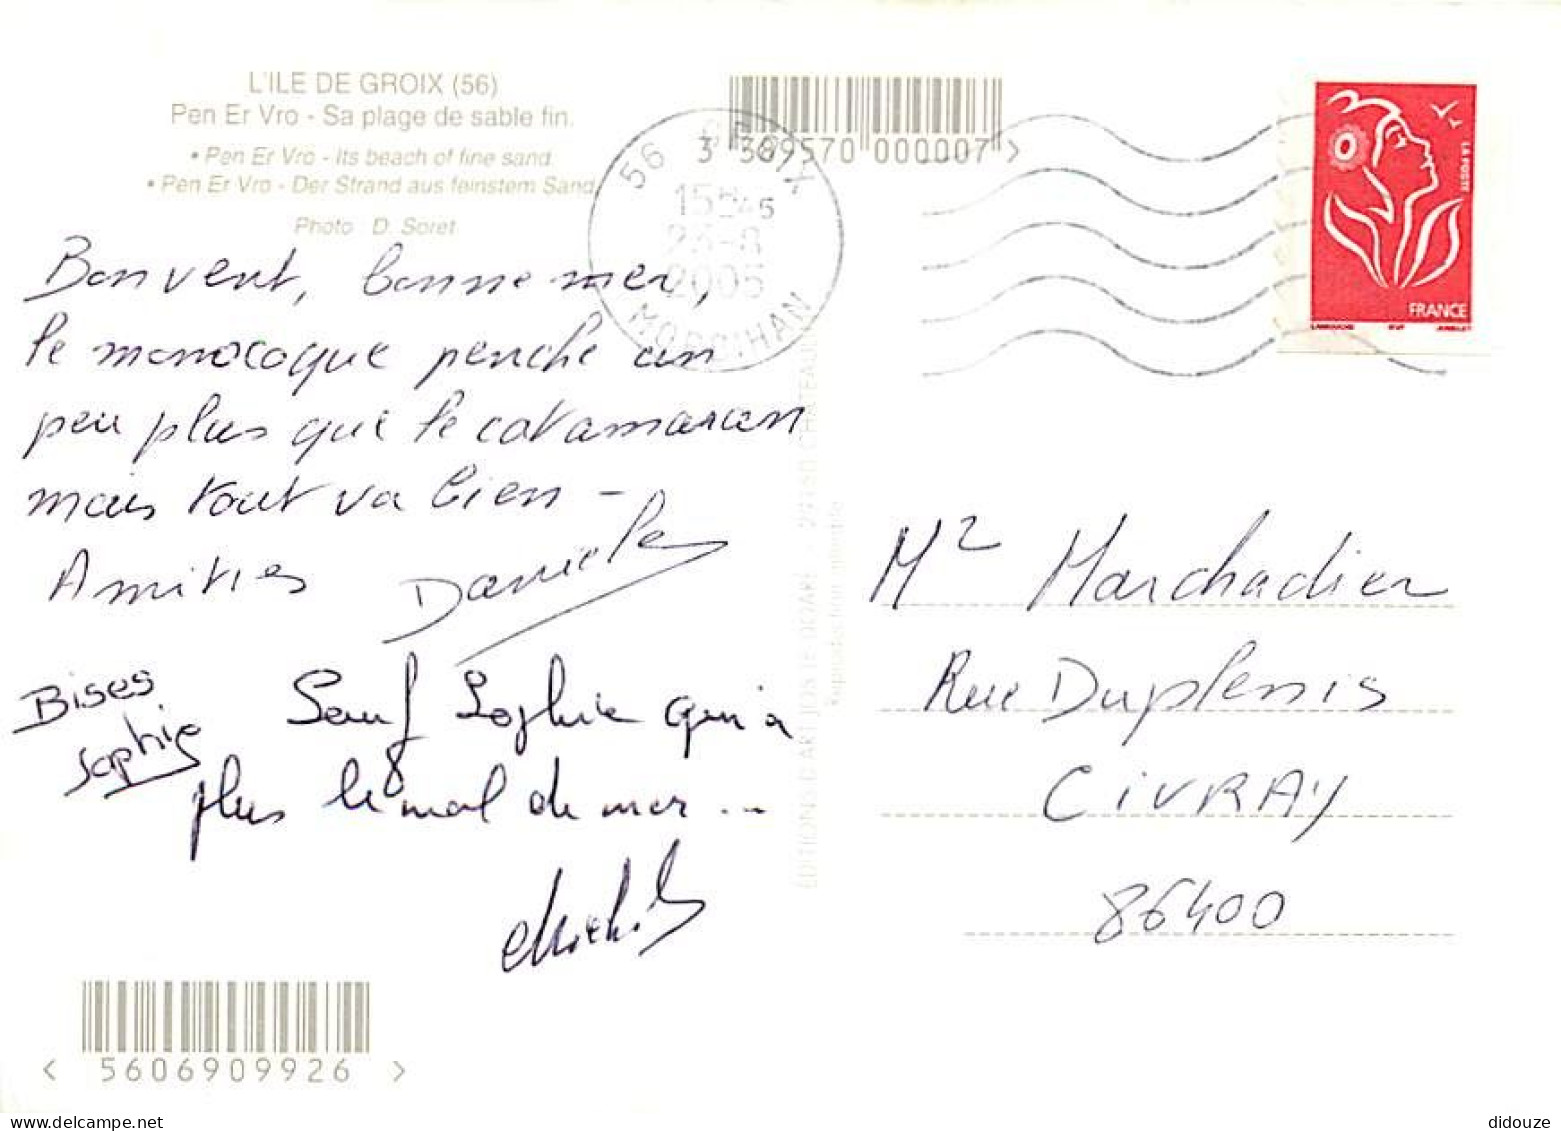 L'ILE DE GROIX (56)
Pen Er Vro - Sa plage de sable fin.
• Pen Er Vro - Its beach of fine sand.
• Pen Er Vro - Der Strand aus feinstem Sand.
Photo : D. Soret
3 389570 000007 >
56 GROIX
15H45
2005
MORBIHAN
LA POSTE
FRANCE
LAMOUCHE ITVF JUMELET
Bon vent, bonne mer,
le monocoque penche un
peu plus que le catamaran
mais tout va bien -
Amitiés Danièle
Bises
Sophie
Sauf Sophie qui a
plus le mal de mer ...
ÉDITIONS D'ART JOS LE DOARÉ - 29150 CHATEAULIN
Reproduction interdite
Marchadier
Rue Duplessis
CIVRAY
86400
< 5606909926 >
didouze